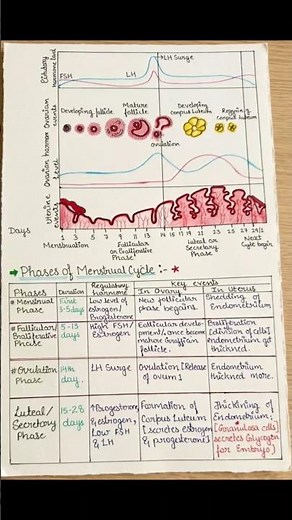 LH Surge
FSH
LH
Pituitary hormone level
Developing follicle
Mature follicle
Developing corpus luteum
Regressing corpus luteum
Ovarian events
ovulation
Ovarian hormone level
Uterine events
Days
1 3 5 7 9 11 13 15 17 19 21 23 25 27 29/1
Menstruation
Follicular or Proliferative Phase
Luteal or Secretory Phase
Next cycle begin
Phases of Menstrual Cycle :-
Phases
Duration
Regulatory hormone
Key events
In Ovary
In Uterus
Menstrual Phase
First 3-5 days
Low level of estrogen/
New follicular phase begains.
Shedding of Endometrium
Proliferative Phase
5-13 days
High FSH/ Estrogen.
mature Graafian follicle.
Proliferation [division of cells] endometrium get thickned.
Ovulation Phase
14th day.
LH Surge
Ovulation [Release of ovum]
Endometrium thickned more.
Luteal/ Secretory Phase
15-28 days
& estrogen, Low FSH & LH
Formation of Corpus Luteum [secretes estrogen & progesterone]
Thickning of Endometrium.
secretes Glycogen for Embryo]